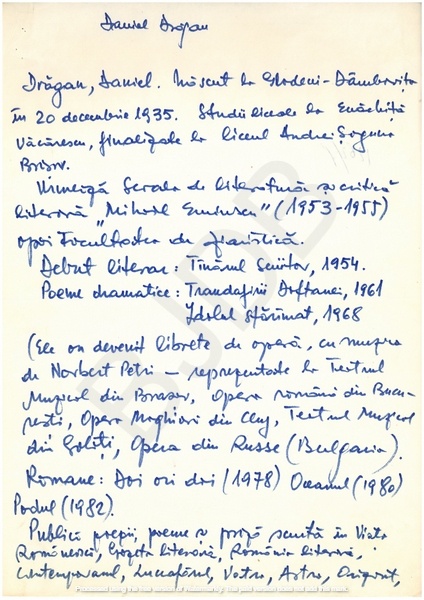 Daniel Drăgan
Drăgan, Daniel. Născut la Glodeni-Dâmbovița
în 20 decembrie 1935. Studii liceale la Enăchiță
Văcărescu, finalizate la liceul Andrei Șaguna
Brașov.
Urmează Școala de literatură și critică
literară "Mihail Eminescu" (1953-1955)
apoi Facultatea de
Debut literar: Tînărul Scriitor, 1954.
Poeme dramatice: Trandafirii Doftanei, 1961
Idolul sfărîmat, 1968
(Ele au devenit librete de operă, cu muzica
de Norbert Petri - reprezentate la Teatrul
Muzical din Brașov, Opera română din Bucu-
rești, Opera Maghiară din Cluj, Teatrul Muzical
din Galați, Opera din Russe (Bulgaria).
Romane: Doi ori doi (1978) Oceanul (1980)
Podul (1982).
Publică poezii, poeme și proză scurtă în Viața
Românească, Gazeta literară, România literară,
Contemporanul, Luceafărul, Vatra, Astra,
BJDB